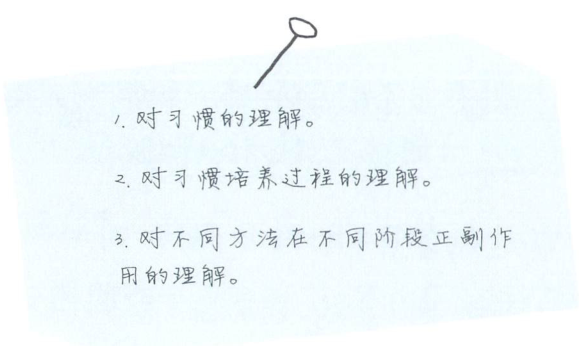 1. 对习惯的理解。
2. 对习惯培养过程的理解。
3. 对不同方法在不同阶段正副作
用的理解。